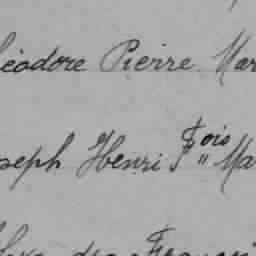 éodore Pierre Mar
seph Henri Fois " Ma